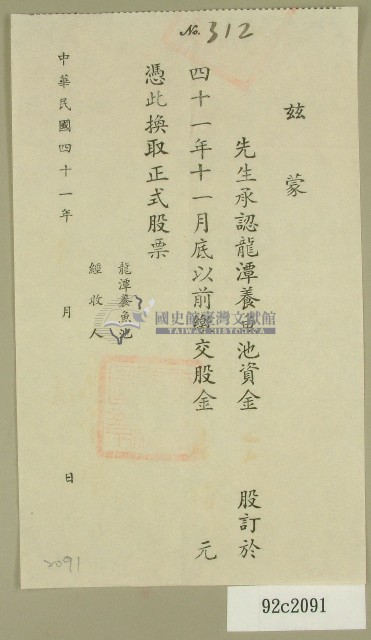 No. 312
茲蒙
先生承認龍潭養魚池資金　股訂於
四十一年十一月底以前繳交股金　元
憑此換取正式股票
龍潭養魚池
經收人
中華民國四十一年　月　日
國史館臺灣文獻館
TAIWAN HISTORICA
2091
92c2091